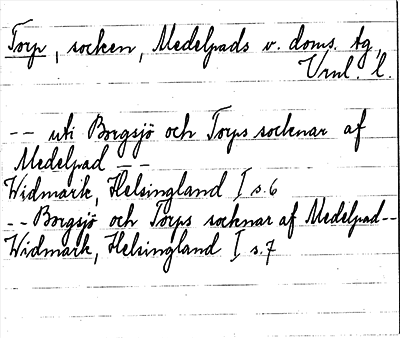 Torp, socken, Medelpads v. doms. tg,
Vrnl. l.
-- uti Borgsjö och Torps socknar af
Medelpad --
Widmark, Helsingland I s.6
-- Borgsjö och Torps socknar af Medelpad--
Widmark, Helsingland I s.7